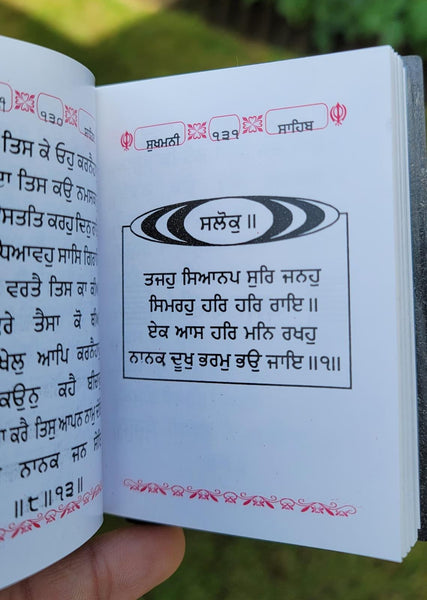 ੧੩੦
ਤਿਸ ਕੇ ਓਹੁ
ਤਿਸ ਕਉ
ਕਰਹੁ
ਸਾਸਿ
ਵਰਤੈ ਤਿਸ ਕਾ
ਤੈਸਾ ਕੋ
ਆਪਿ
ਕਹੈ
ਕਰੈ ਤਿਸੁ ਆਪਨ ਨਾਮੁ
ਨਾਨਕ ਜਨ
॥੮॥੧੩॥
ਸੁਖਮਨੀ ੧੩੧ ਸਾਹਿਬ
ਸਲੋਕੁ ॥
ਤਜਹੁ ਸਿਆਨਪ ਸੁਰਿ ਜਨਹੁ
ਸਿਮਰਹੁ ਹਰਿ ਹਰਿ ਰਾਇ ॥
ਏਕ ਆਸ ਹਰਿ ਮਨਿ ਰਖਹੁ
ਨਾਨਕ ਦੂਖੁ ਭਰਮੁ ਭਉ ਜਾਇ ॥੧॥